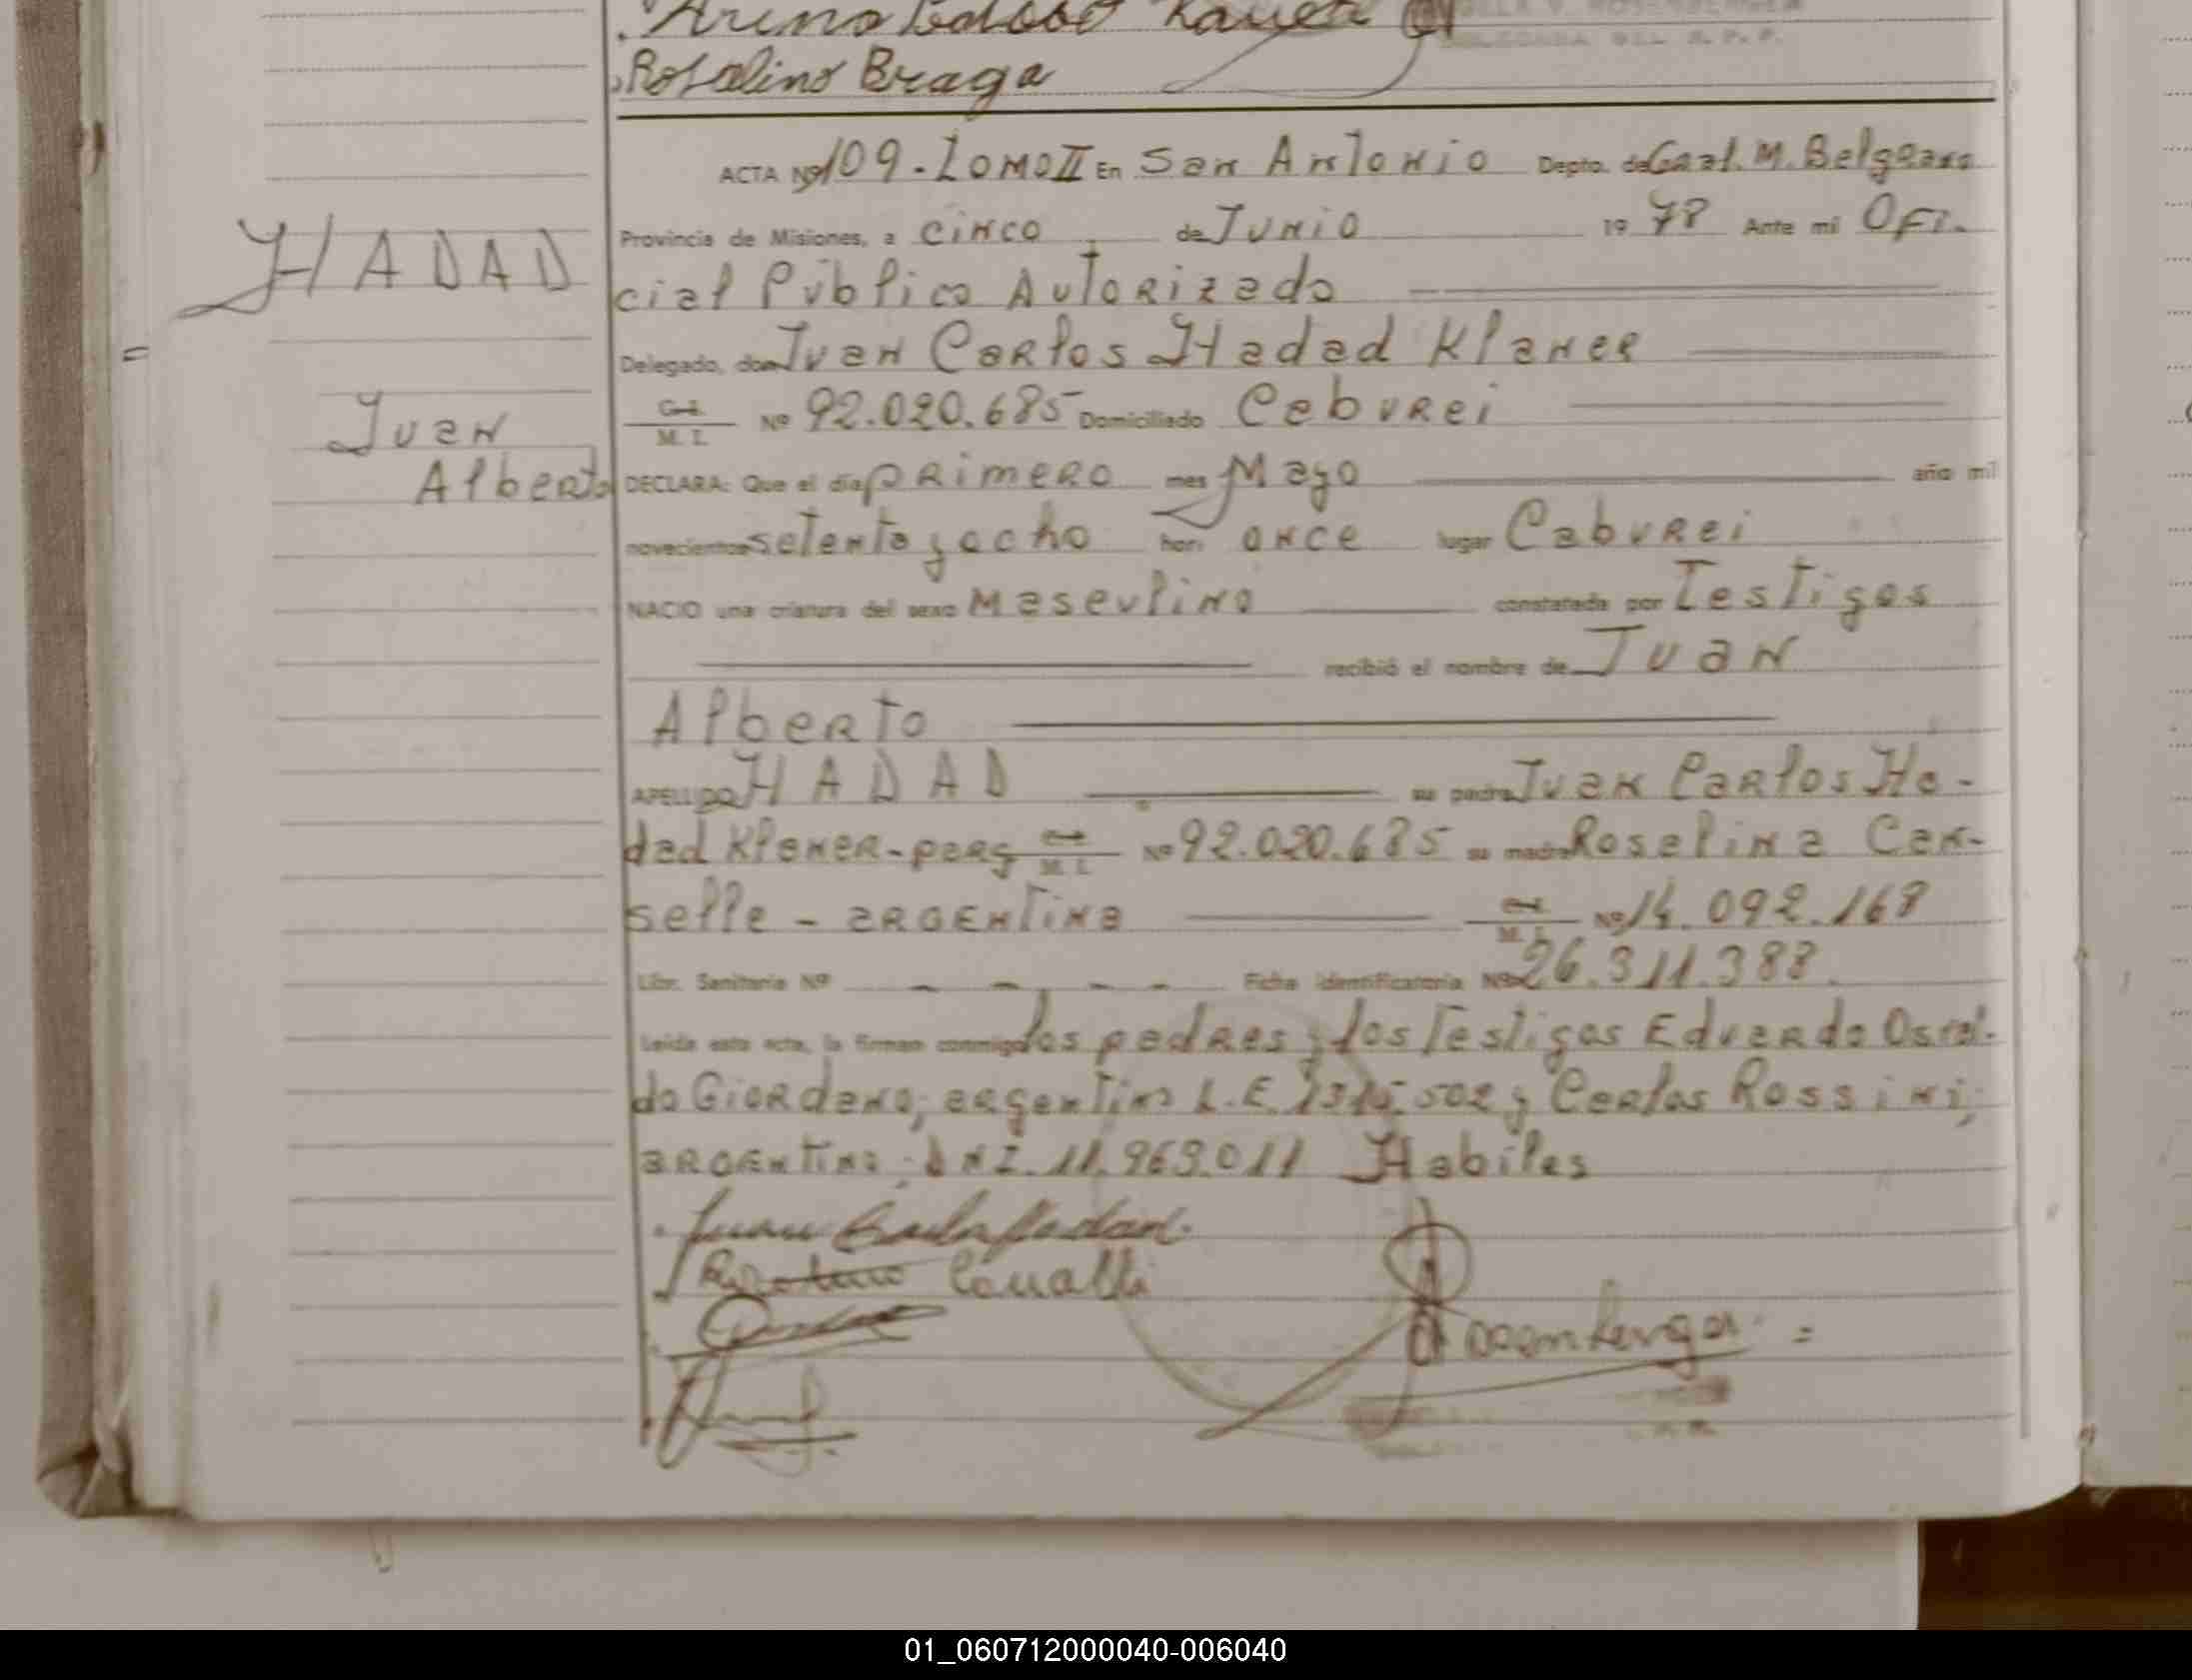 Rosalino Braga
ACTA Nº 109 - Tomo II En San Antonio Depto. de Gral. M. Belgrano
HADAD
Provincia de Misiones, a cinco de Junio 1978 Ante mi Ofi-
cial Público Autorizado
Delegado, don Juan Carlos Hadad Klaner
M. I. Nº 92.020.685 Domiciliado Caburei
Juan
Alberto
DECLARA: Que el día primero mes Mayo año mil
novecientos setenta y ocho hora once lugar Caburei
NACIO una criatura del sexo Masculino constatada por Testigos
recibió el nombre de Juan
Alberto
APELLIDO HADAD su padre Juan Carlos Ha-
dad Klaner - parg M. I. Nº 92.020.685 su madre Roselina Can-
selle - argentina M. I. Nº 14.092.168
Libr. Sanitaria Nº - - - - Ficha identificatoria Nº 26.311.388.
Leída esta acta, la firman conmigo los padres y los Testigos Eduardo Osval-
do Giordano, argentino L.E. 502 y Carlos Rossini,
argentino, DNI. 11.963.011 Habiles
Juan Carlos Hadad.
01_060712000040-006040